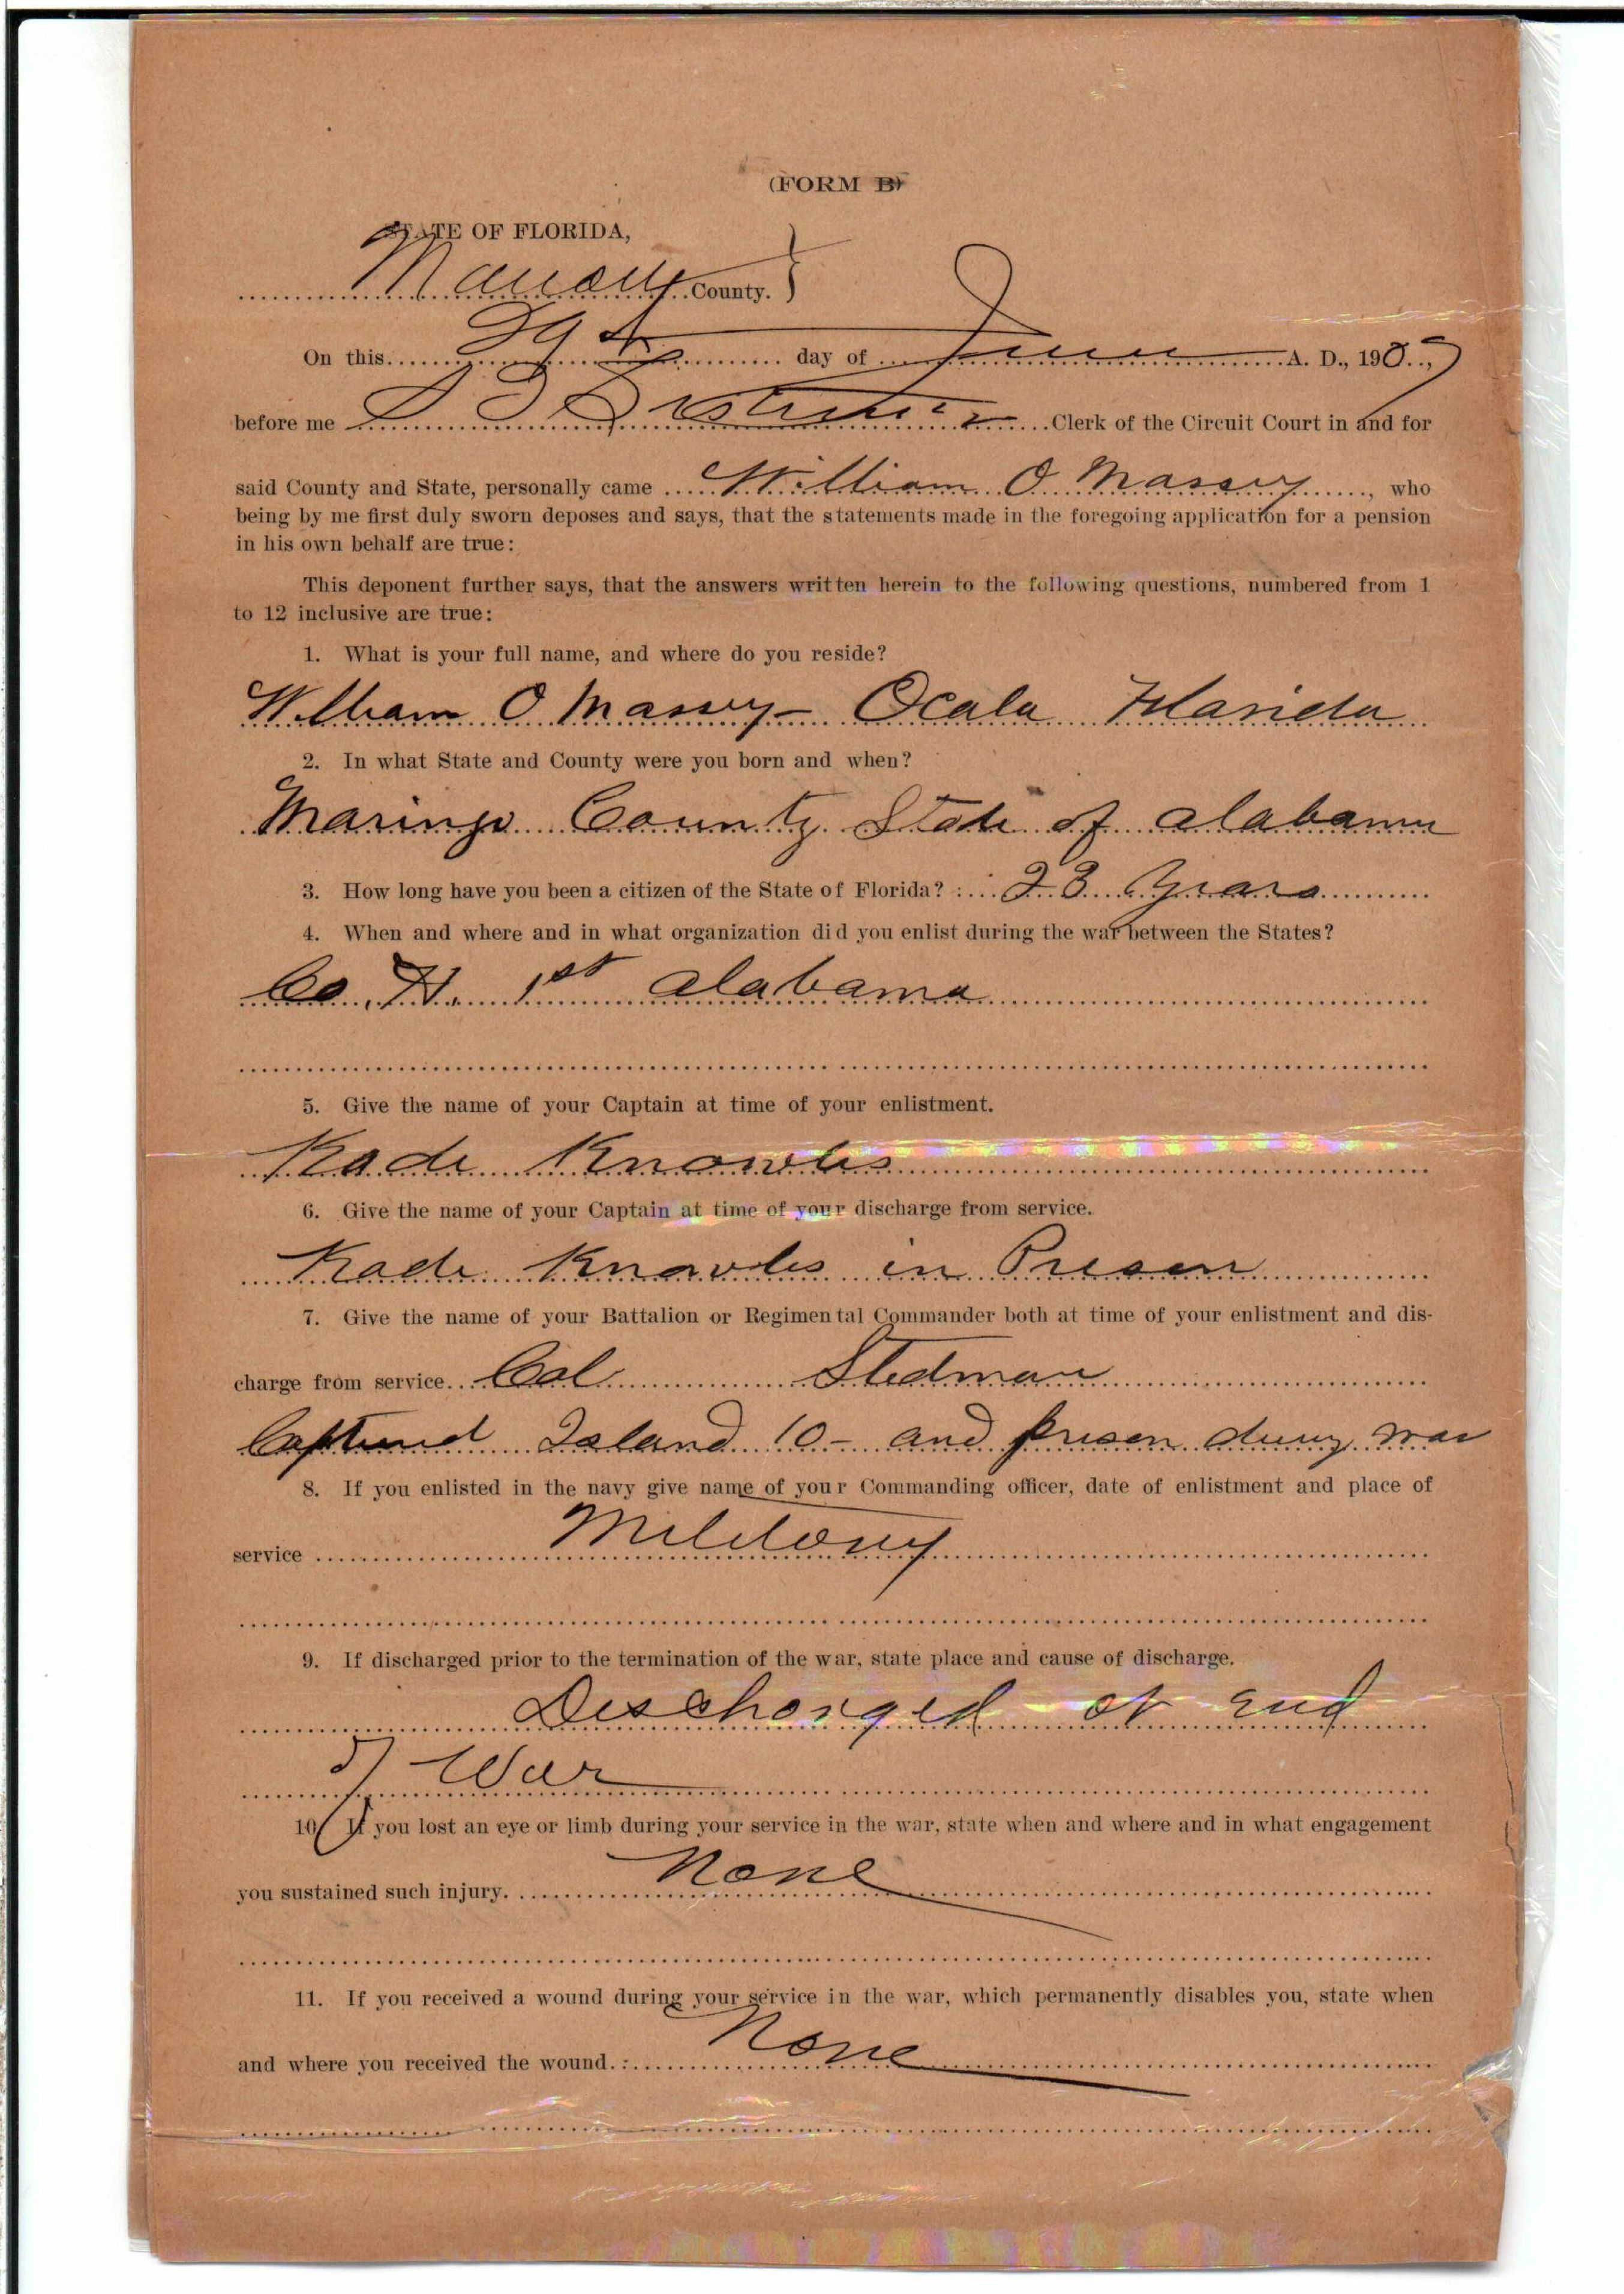 (FORM B)
STATE OF FLORIDA,
Marion County.
On this 29th day of June A. D., 1907
before me S T Sistrunk Clerk of the Circuit Court in and for
said County and State, personally came William O Massey, who
being by me first duly sworn deposes and says, that the statements made in the foregoing application for a pension
in his own behalf are true:
This deponent further says, that the answers written herein to the following questions, numbered from 1
to 12 inclusive are true:
1. What is your full name, and where do you reside?
William O Massey - Ocala Florida
2. In what State and County were you born and when?
Maringo County State of Alabama
3. How long have you been a citizen of the State of Florida? : 23 Years
4. When and where and in what organization did you enlist during the war between the States?
Co. H. 1st Alabama
5. Give the name of your Captain at time of your enlistment.
Kade Knowles
6. Give the name of your Captain at time of your discharge from service.
Kade Knowles in Preson
7. Give the name of your Battalion or Regimental Commander both at time of your enlistment and dis-
charge from service. Col Stedman
Captured Island 10 - and prison during war
8. If you enlisted in the navy give name of your Commanding officer, date of enlistment and place of
service Militory
9. If discharged prior to the termination of the war, state place and cause of discharge.
Discharged at End
of War
10. If you lost an eye or limb during your service in the war, state when and where and in what engagement
you sustained such injury. None
11. If you received a wound during your service in the war, which permanently disables you, state when
and where you received the wound. : None